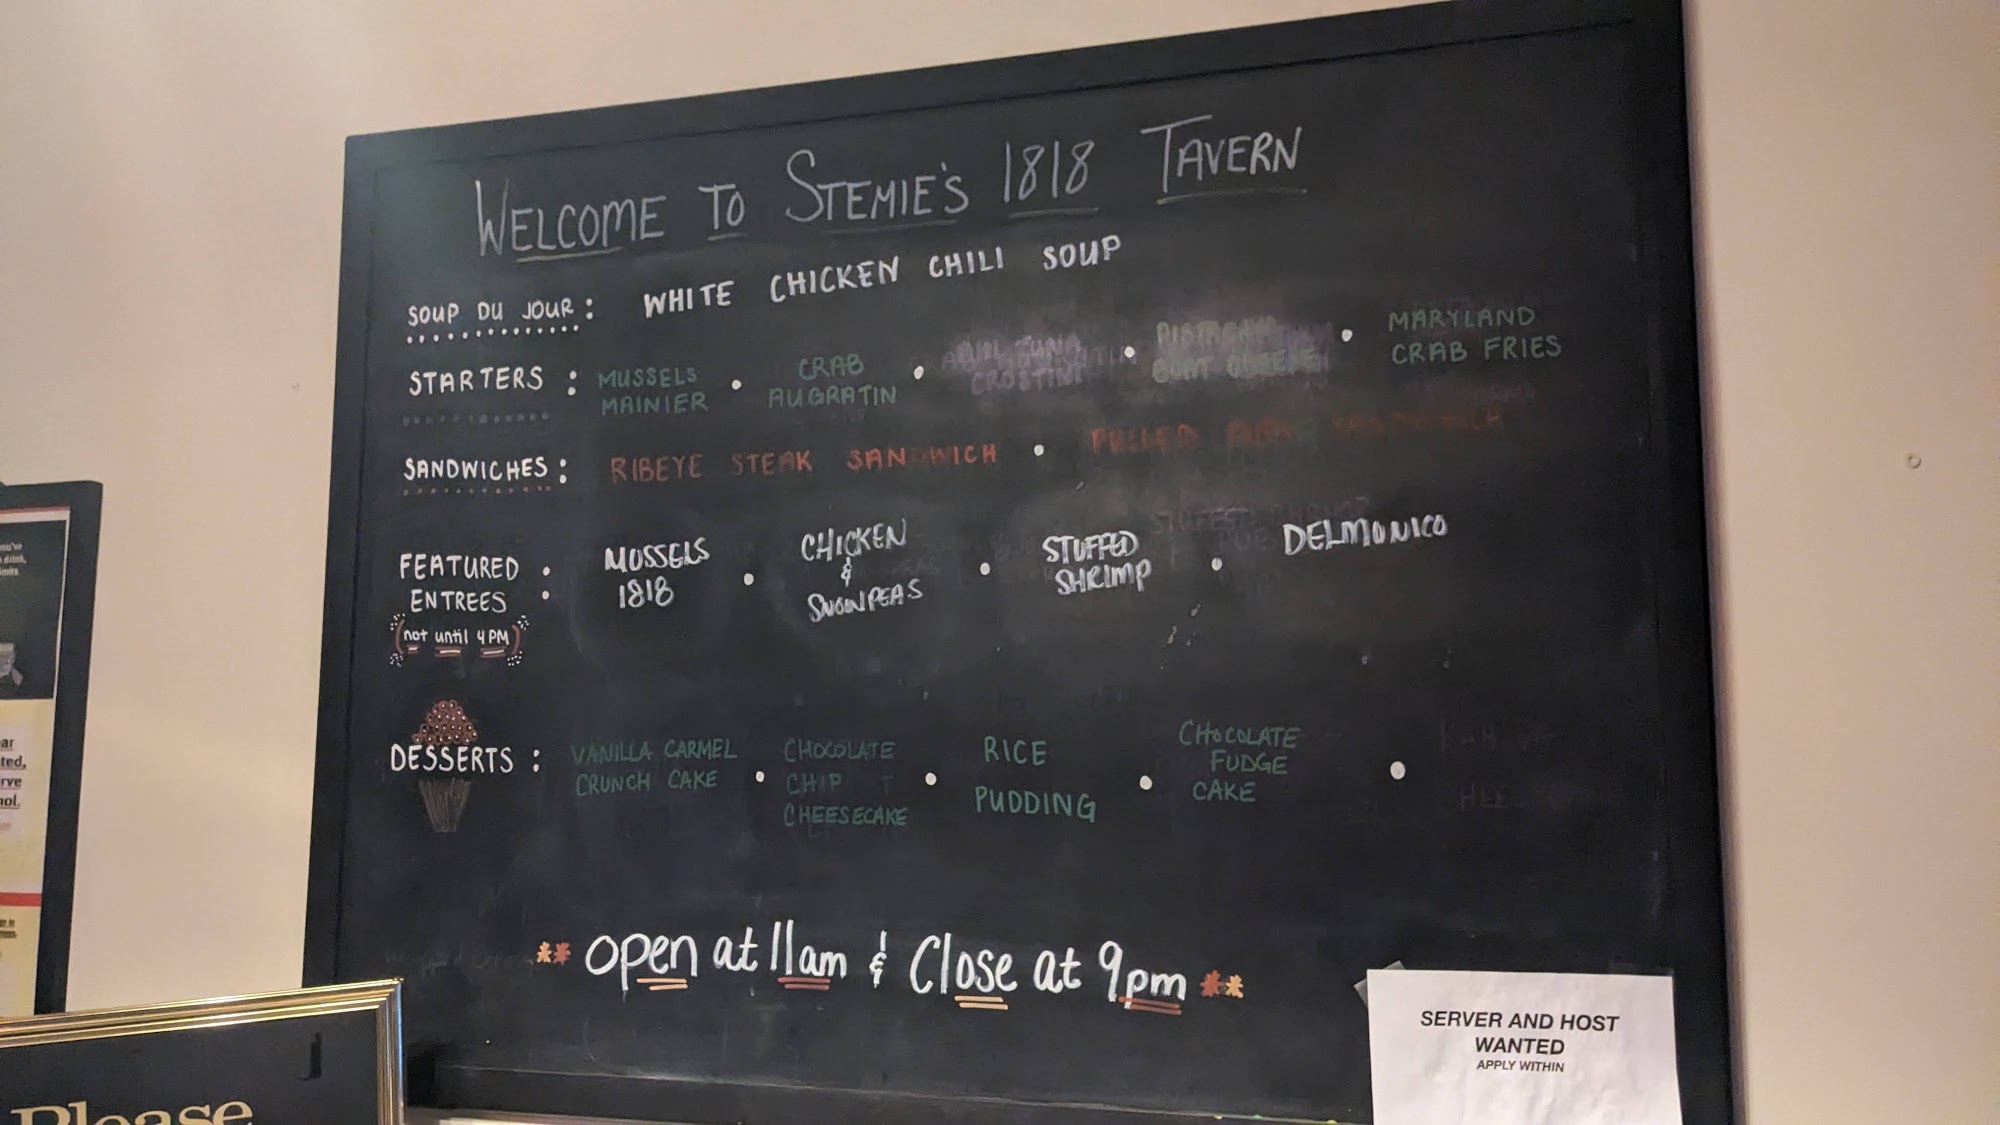 WELCOME TO STEMIE'S 1818 TAVERN
SOUP DU JOUR: WHITE CHICKEN CHILI SOUP
STARTERS:
MUSSELS
MAINIER
•
CRAB
AUGRATIN
•
AHI TUNA
CROSTINI
•
GOAT CHEESE
•
MARYLAND
CRAB FRIES
SANDWICHES: RIBEYE STEAK SANDWICH • PULLED PORK SANDWICH
FEATURED
ENTREES
:
(not until 4PM)
MUSSELS
1818
•
CHICKEN
&
SNOWPEAS
•
STUFFED
SHRIMP
•
DELMONICO
DESSERTS:
VANILLA CARMEL
CRUNCH CAKE
•
CHOCOLATE
CHIP
CHEESECAKE
•
RICE
PUDDING
•
CHOCOLATE
FUDGE
CAKE
•
** open at 11am & Close at 9pm **
SERVER AND HOST
WANTED
APPLY WITHIN
Please